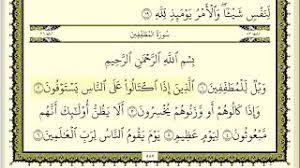 لِّنَفْسٍ شَيْـًٔا ۖ وَٱلْأَمْرُ يَوْمَئِذٍ لِّلَّهِ ١٩
سُورَةُ الْمُطَفِّفِينَ
بِسْمِ ٱللَّهِ ٱلرَّحْمَٰنِ ٱلرَّحِيمِ
وَيْلٌ لِّلْمُطَفِّفِينَ ١ ٱلَّذِينَ إِذَا ٱكْتَالُوا۟ عَلَى ٱلنَّاسِ يَسْتَوْفُونَ ٢
وَإِذَا كَالُوهُمْ أَو وَّزَنُوهُمْ يُخْسِرُونَ ٣ أَلَا يَظُنُّ أُو۟لَٰٓئِكَ أَنَّهُم
مَّبْعُوثُونَ ٤ لِيَوْمٍ عَظِيمٍ ٥ يَوْمَ يَقُومُ ٱلنَّاسُ لِرَبِّ ٱلْعَٰلَمِينَ ٦